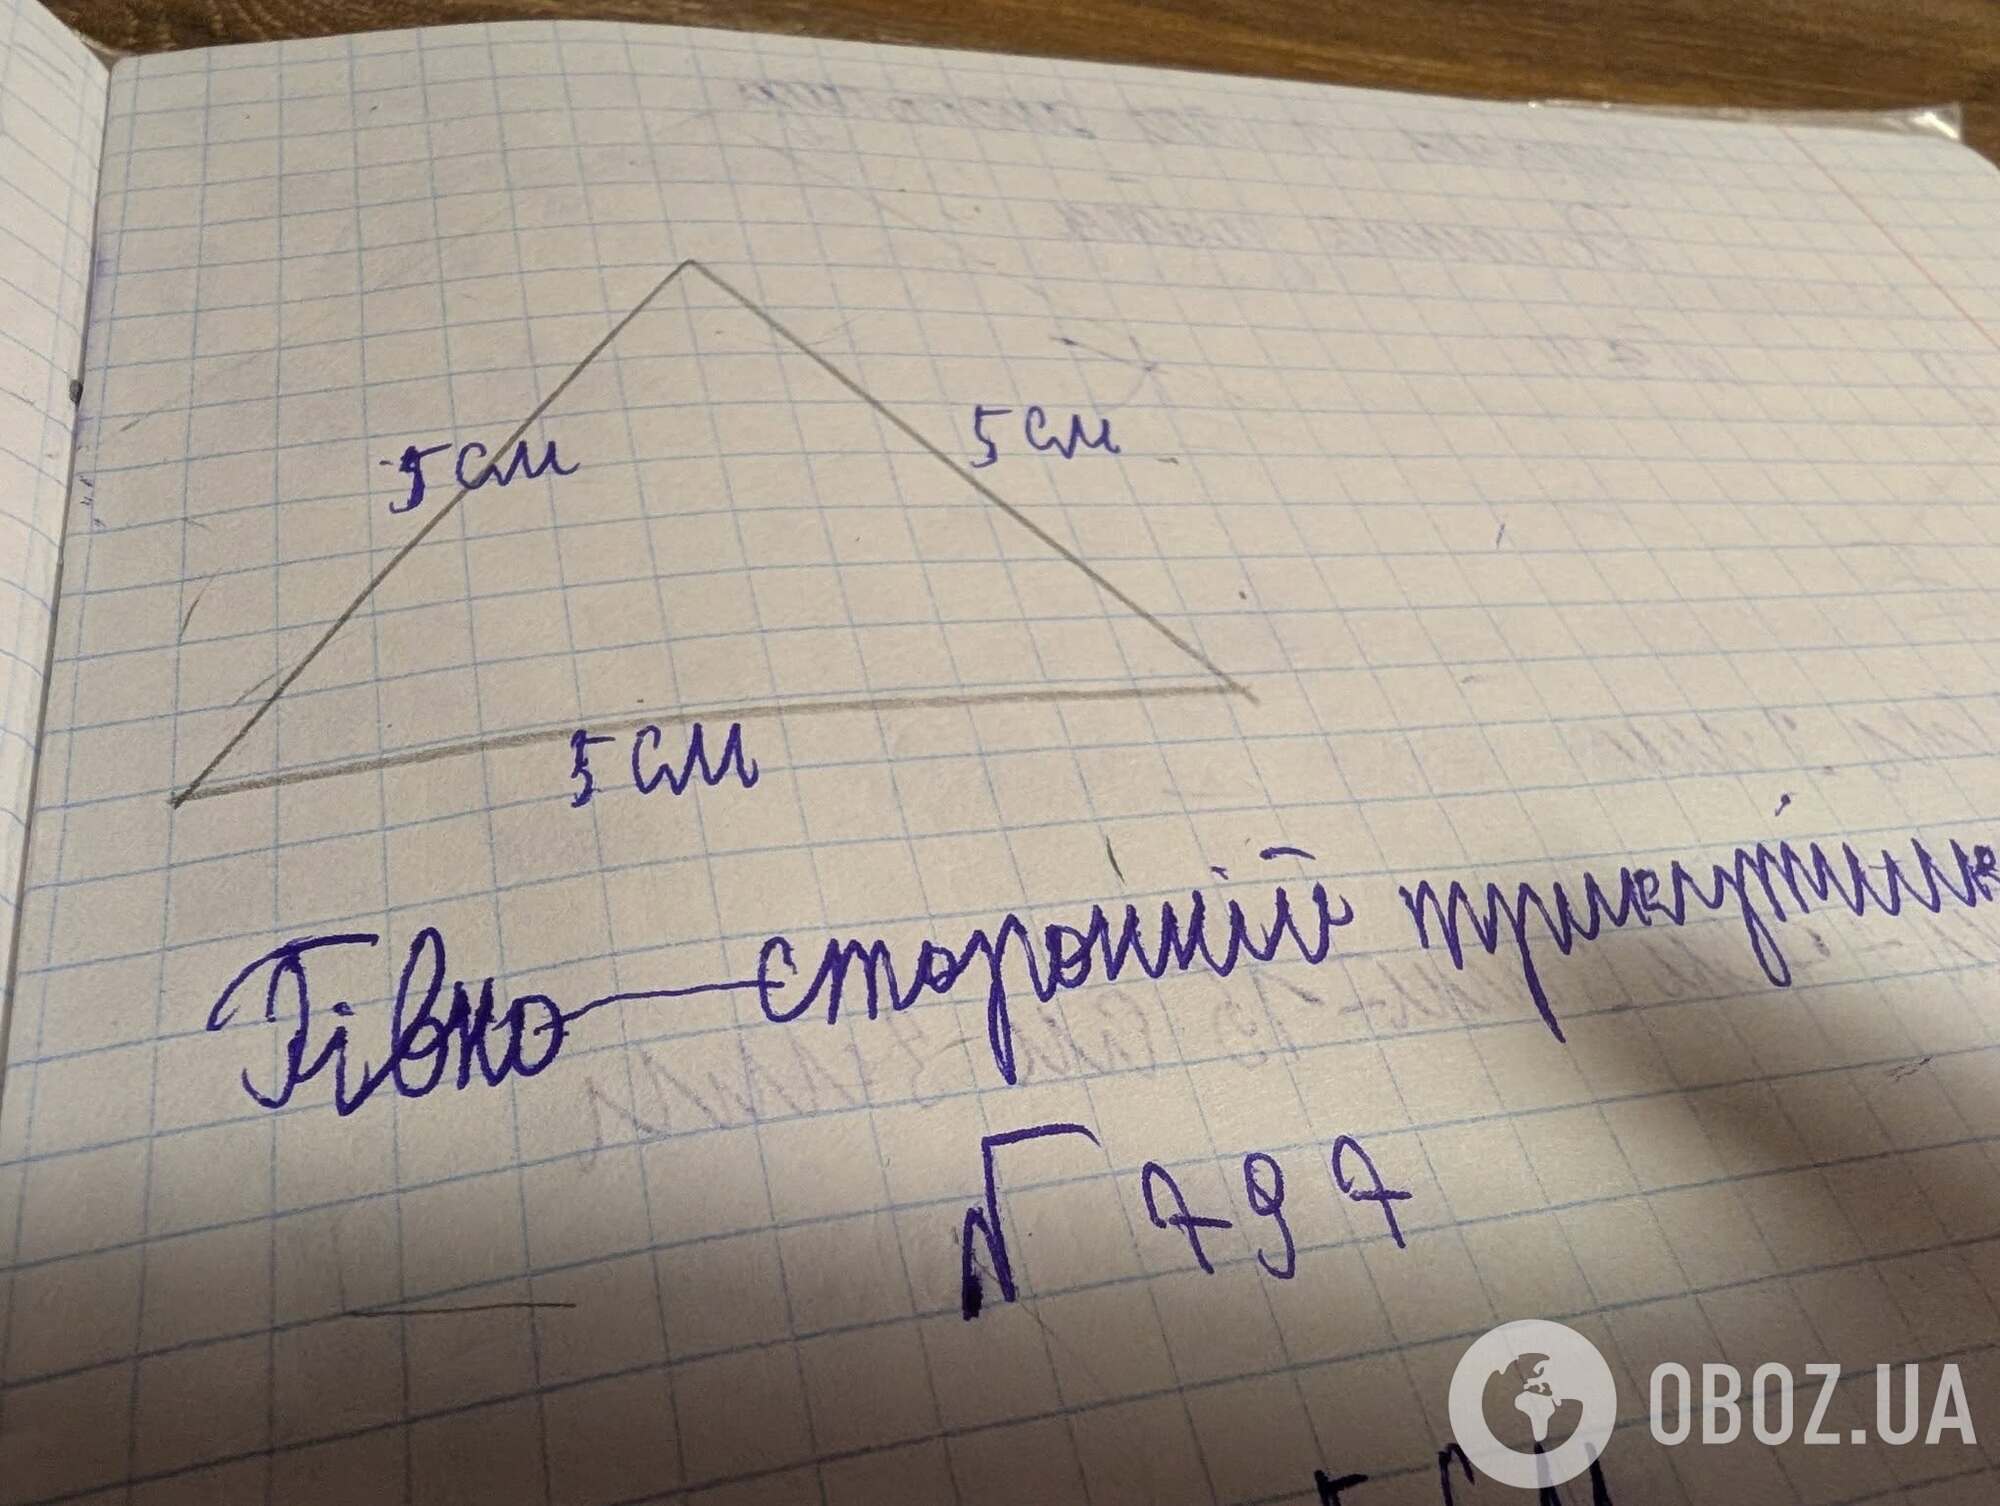 5 см
5 см
5 см
Рівно-сторонній трикутник
√ 797
5 см
OBOZ.UA